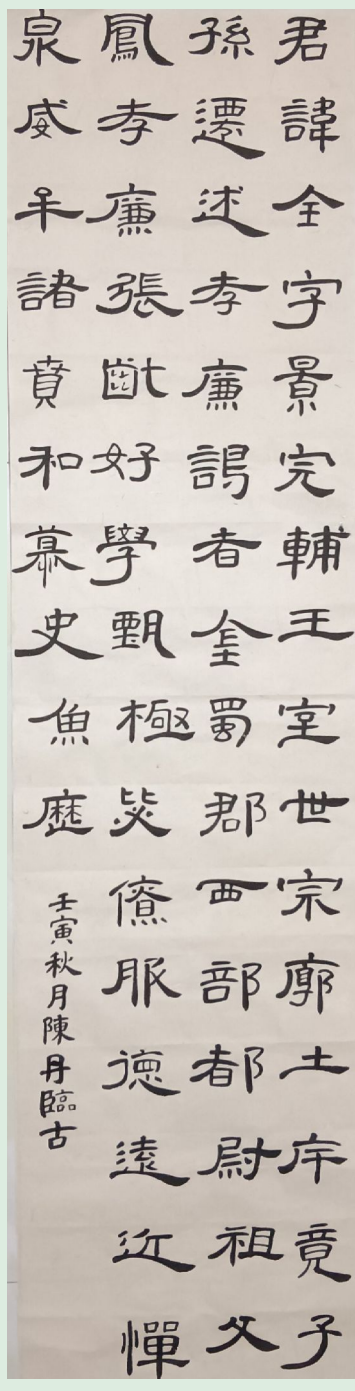 君諱全字景完輔王室世宗廓土斥竟子
孫遷述孝廉謁者金蜀郡西部都尉祖父
鳳孝廉張齔好學甄極毖僚服德遠近憚
泉威牟諸賁和慕史魚歷
壬寅秋月陳丹臨古